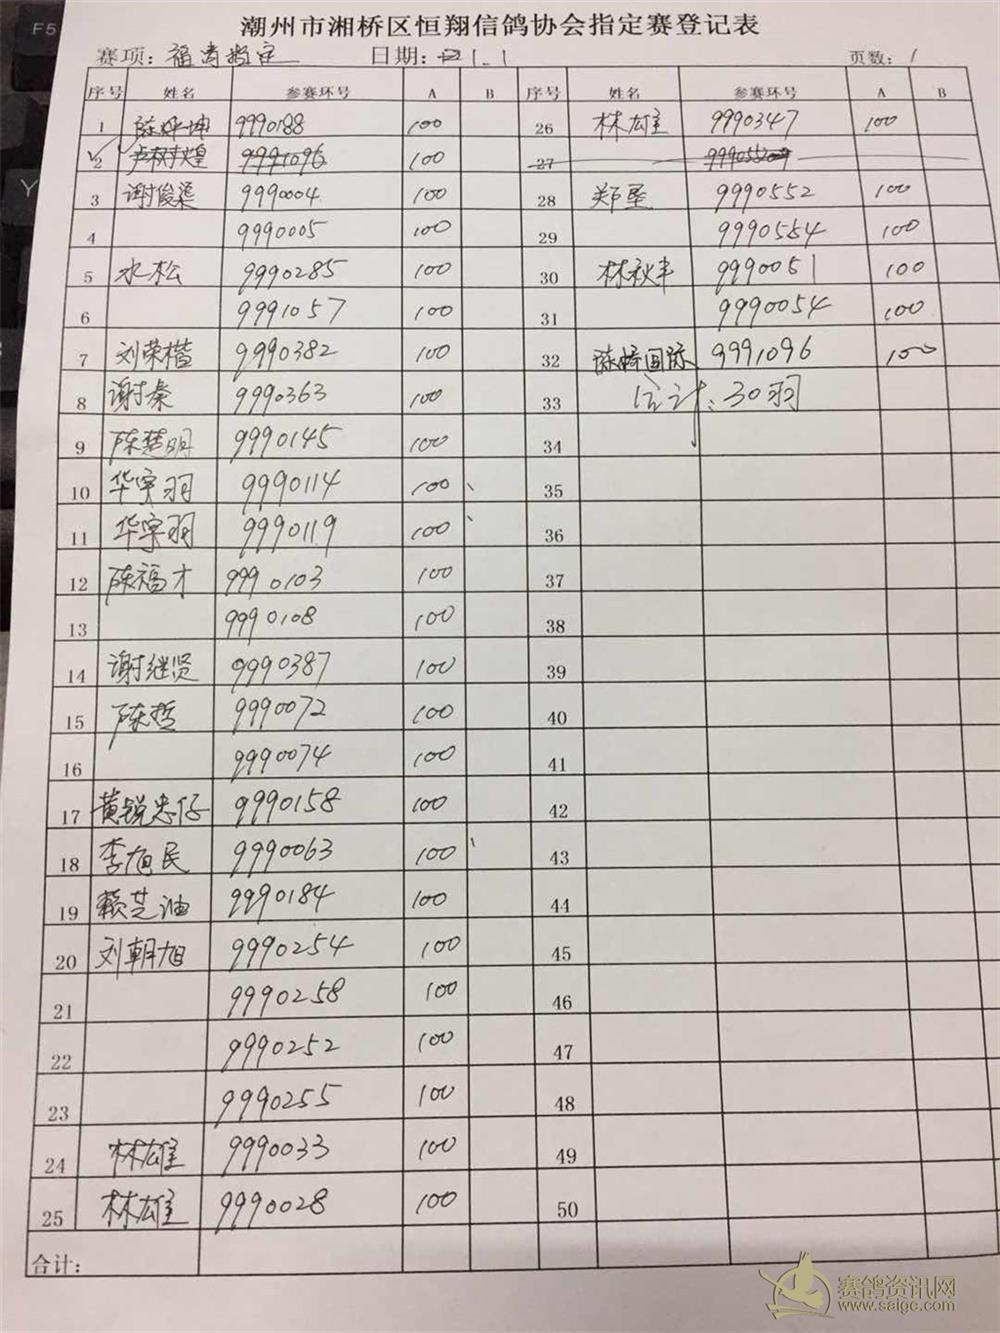 潮州市湘桥区恒翔信鸽协会指定赛登记表
赛项：福清指定 日期：1.1 页数：1
序号 姓名 参赛环号 A B 序号 姓名 参赛环号 A B
1 9990188 100 26 林雄 9990347 100
2 卢树煌 9991096 100 27
3 谢俊 9990004 100 28 郑 9990552 100
4 9990005 100 29 9990554 100
5 水松 9990285 100 30 林秋丰 9990051 100
6 9991057 100 31 9990054 100
7 刘荣楷 9990382 100 32 9991096 100
8 谢秦 9990363 100 33 合计：30羽
9 陈楚明 9990145 100 34
10 华宗羽 9990114 100 35
11 华宗羽 9990119 100 36
12 陈福才 9990103 100 37
13 9990108 100 38
14 谢继贤 9990387 100 39
15 陈哲 9990072 100 40
16 9990074 100 41
17 黄锐忠仔 9990158 100 42
18 李旭民 9990063 100 43
19 赖芝迪 9990184 100 44
20 刘朝旭 9990254 100 45
21 9990258 100 46
22 9990252 100 47
23 9990255 100 48
24 林雄 9990033 100 49
25 林雄 9990028 100 50
合计：
赛鸽资讯网
www.saige.com
F5
Y